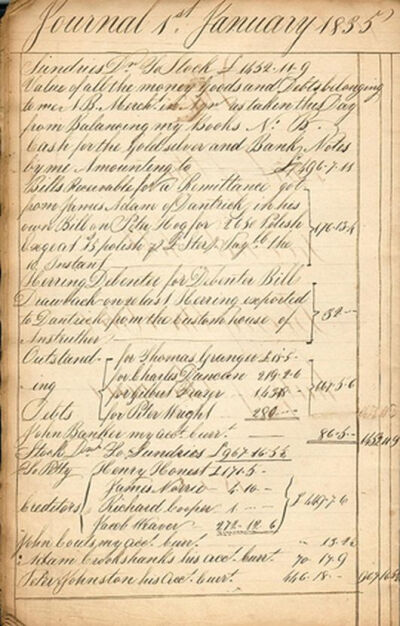 Journal 1st January 1835
Sundries Dr To Stock £1452.11.9
Value of all the money Goods and Debts belonging
to me N.B. Merch. in as taken this Day
from Balancing my Books No. B.
Cash for the Gold silver and Bank Notes
by me Amounting to £496.7.11
Bills Receivable for a Remittance got
from James Adam of Dantzick in his
own Bill on Peter Hog for Polish
polish Ster. the
10 Instant
Herring Debentee for Debenter Bill
Drawback on 20 last Herring exported
to Dantzick from the Custom house of
Anstruther
Outstand- for Thomas Granger £15.5-
for Charles Duncan 219.2.6
ing for Gilbert Frazer
Debts for Peter Wright 280
John Banker my acct. curt. 86.5-
Stock Dr To Sundries £967.16.5
To Petty Henry Honest £170.5-
James Norrie 4.10-
Creditors Richard Cooper
Jacob Weaver 272.12.6 £449.7.6
John Couts my acct. curt.
Adam Crookshanks his acct. curt. 70.17.9
Peter Johnston his acct. curt. 446.18-